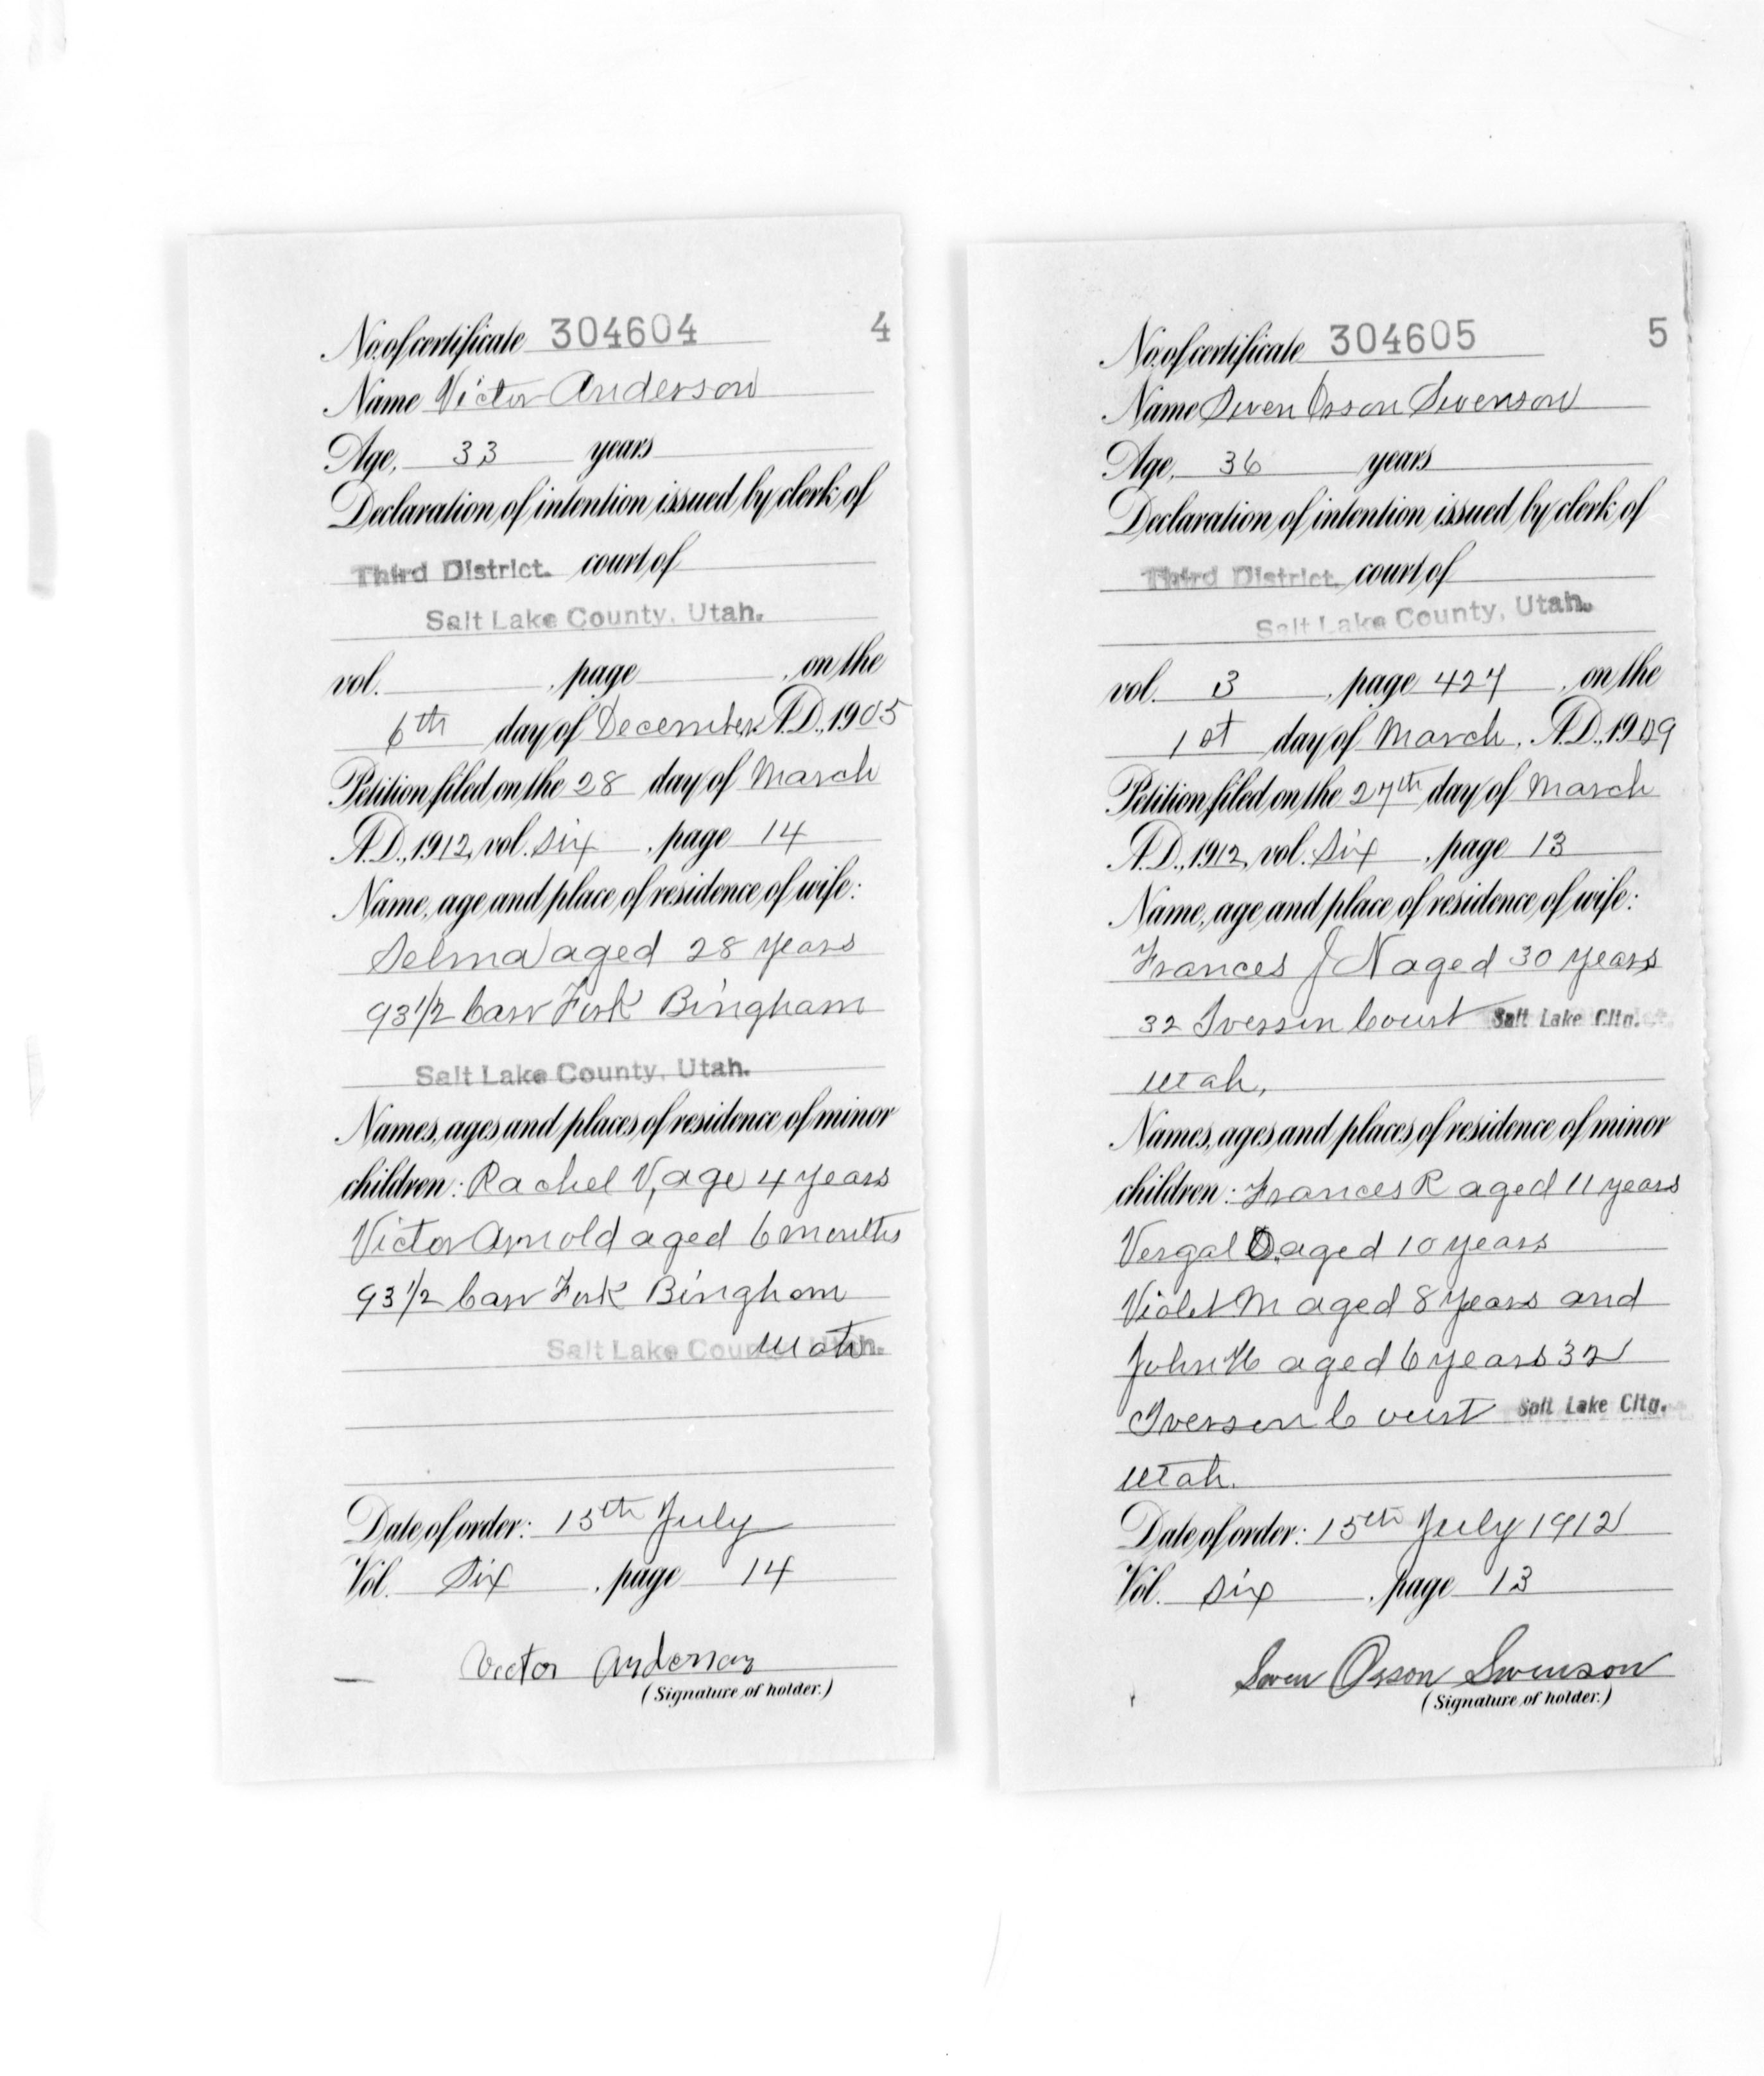 No. of certificate 304604 4
Name Victor Anderson
Age, 33 years
Declaration of intention issued by clerk of
Third District. court of
Salt Lake County, Utah.
vol. , page , on the
6th day of December, A.D., 1905
Petition filed on the 28 day of March
A.D., 1912, vol. Six , page 14
Name, age and place of residence of wife:
Selma aged 28 years
93 1/2 Carr Fork Bingham
Salt Lake County, Utah.
Names, ages and places of residence of minor
children: Rachel V, age 4 years
Victor Arnold aged 6 months
93 1/2 Carr Fork Bingham
Salt Lake County, Utah. Utah
Date of order: 15th July
Vol. Six , page 14
Victor Anderson
(Signature of holder.)
No. of certificate 304605 5
Name Swen Osson Swenson
Age, 36 years
Declaration of intention issued by clerk of
Third District. court of
Salt Lake County, Utah.
vol. 3 , page 427 , on the
1st day of March, A.D., 1909
Petition filed on the 27th day of March
A.D., 1912, vol. Six , page 13
Name, age and place of residence of wife:
Frances J N aged 30 years
32 Iverson Court Salt Lake City.
Utah,
Names, ages and places of residence of minor
children: Frances R aged 11 years
Vergal O. aged 10 years
Violet M aged 8 years and
John H aged 6 years 32
Iverson Court Salt Lake City.
Utah.
Date of order: 15th July 1912
Vol. Six , page 13
Swen Osson Swenson
(Signature of holder.)